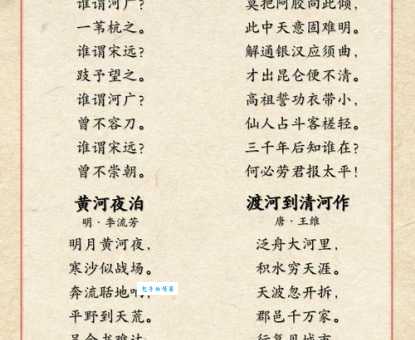 谁谓河广?
一苇杭之。
谁谓宋远?
跂予望之。
谁谓河广?
曾不容刀。
谁谓宋远?
曾不崇朝。
黄河夜泊
明·李流芳
明月黄河夜,
寒沙似战场。
奔流聒地响,
平野到天荒。
莫把阿胶向此倾,
此中天意固难明。
解通银汉应须曲,
才出昆仑便不清。
高祖誓功衣带小,
仙人占斗客槎轻。
三千年后知谁在?
何必劳君报太平!
渡河到清河作
唐·王维
泛舟大河里,
积水穷天涯。
天波忽开拆,
郡邑千万家。